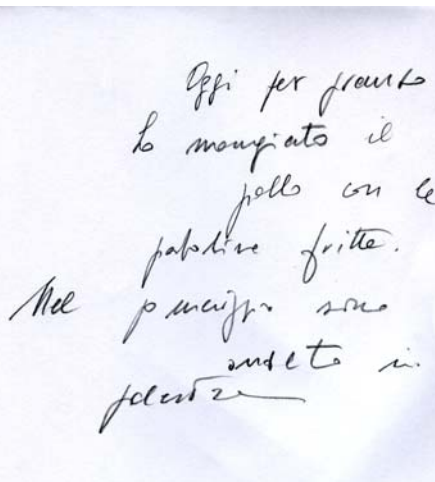 Oggi per pranzo
ho mangiato il
pollo con le
patatine fritte.
Nel pomeriggio sono
andato in
palestra